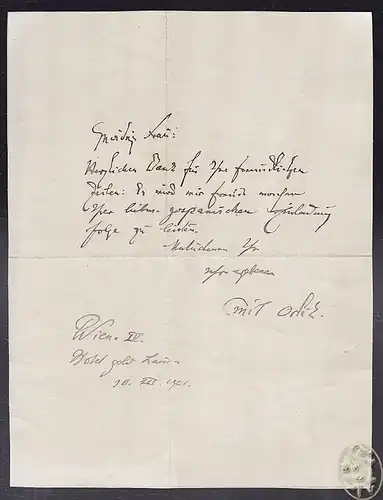 Gnädige Frau:
Herzlichen Dank für Ihre freundlichen
Zeilen: Es wird mir Freude machen
Ihrer liebenswürdigen Einladung
folge zu leisten.
Ihr
sehr ergebener
Emil Orlik.
Wien. IV.
Hotel gold. Lamm
10. III. 1901.